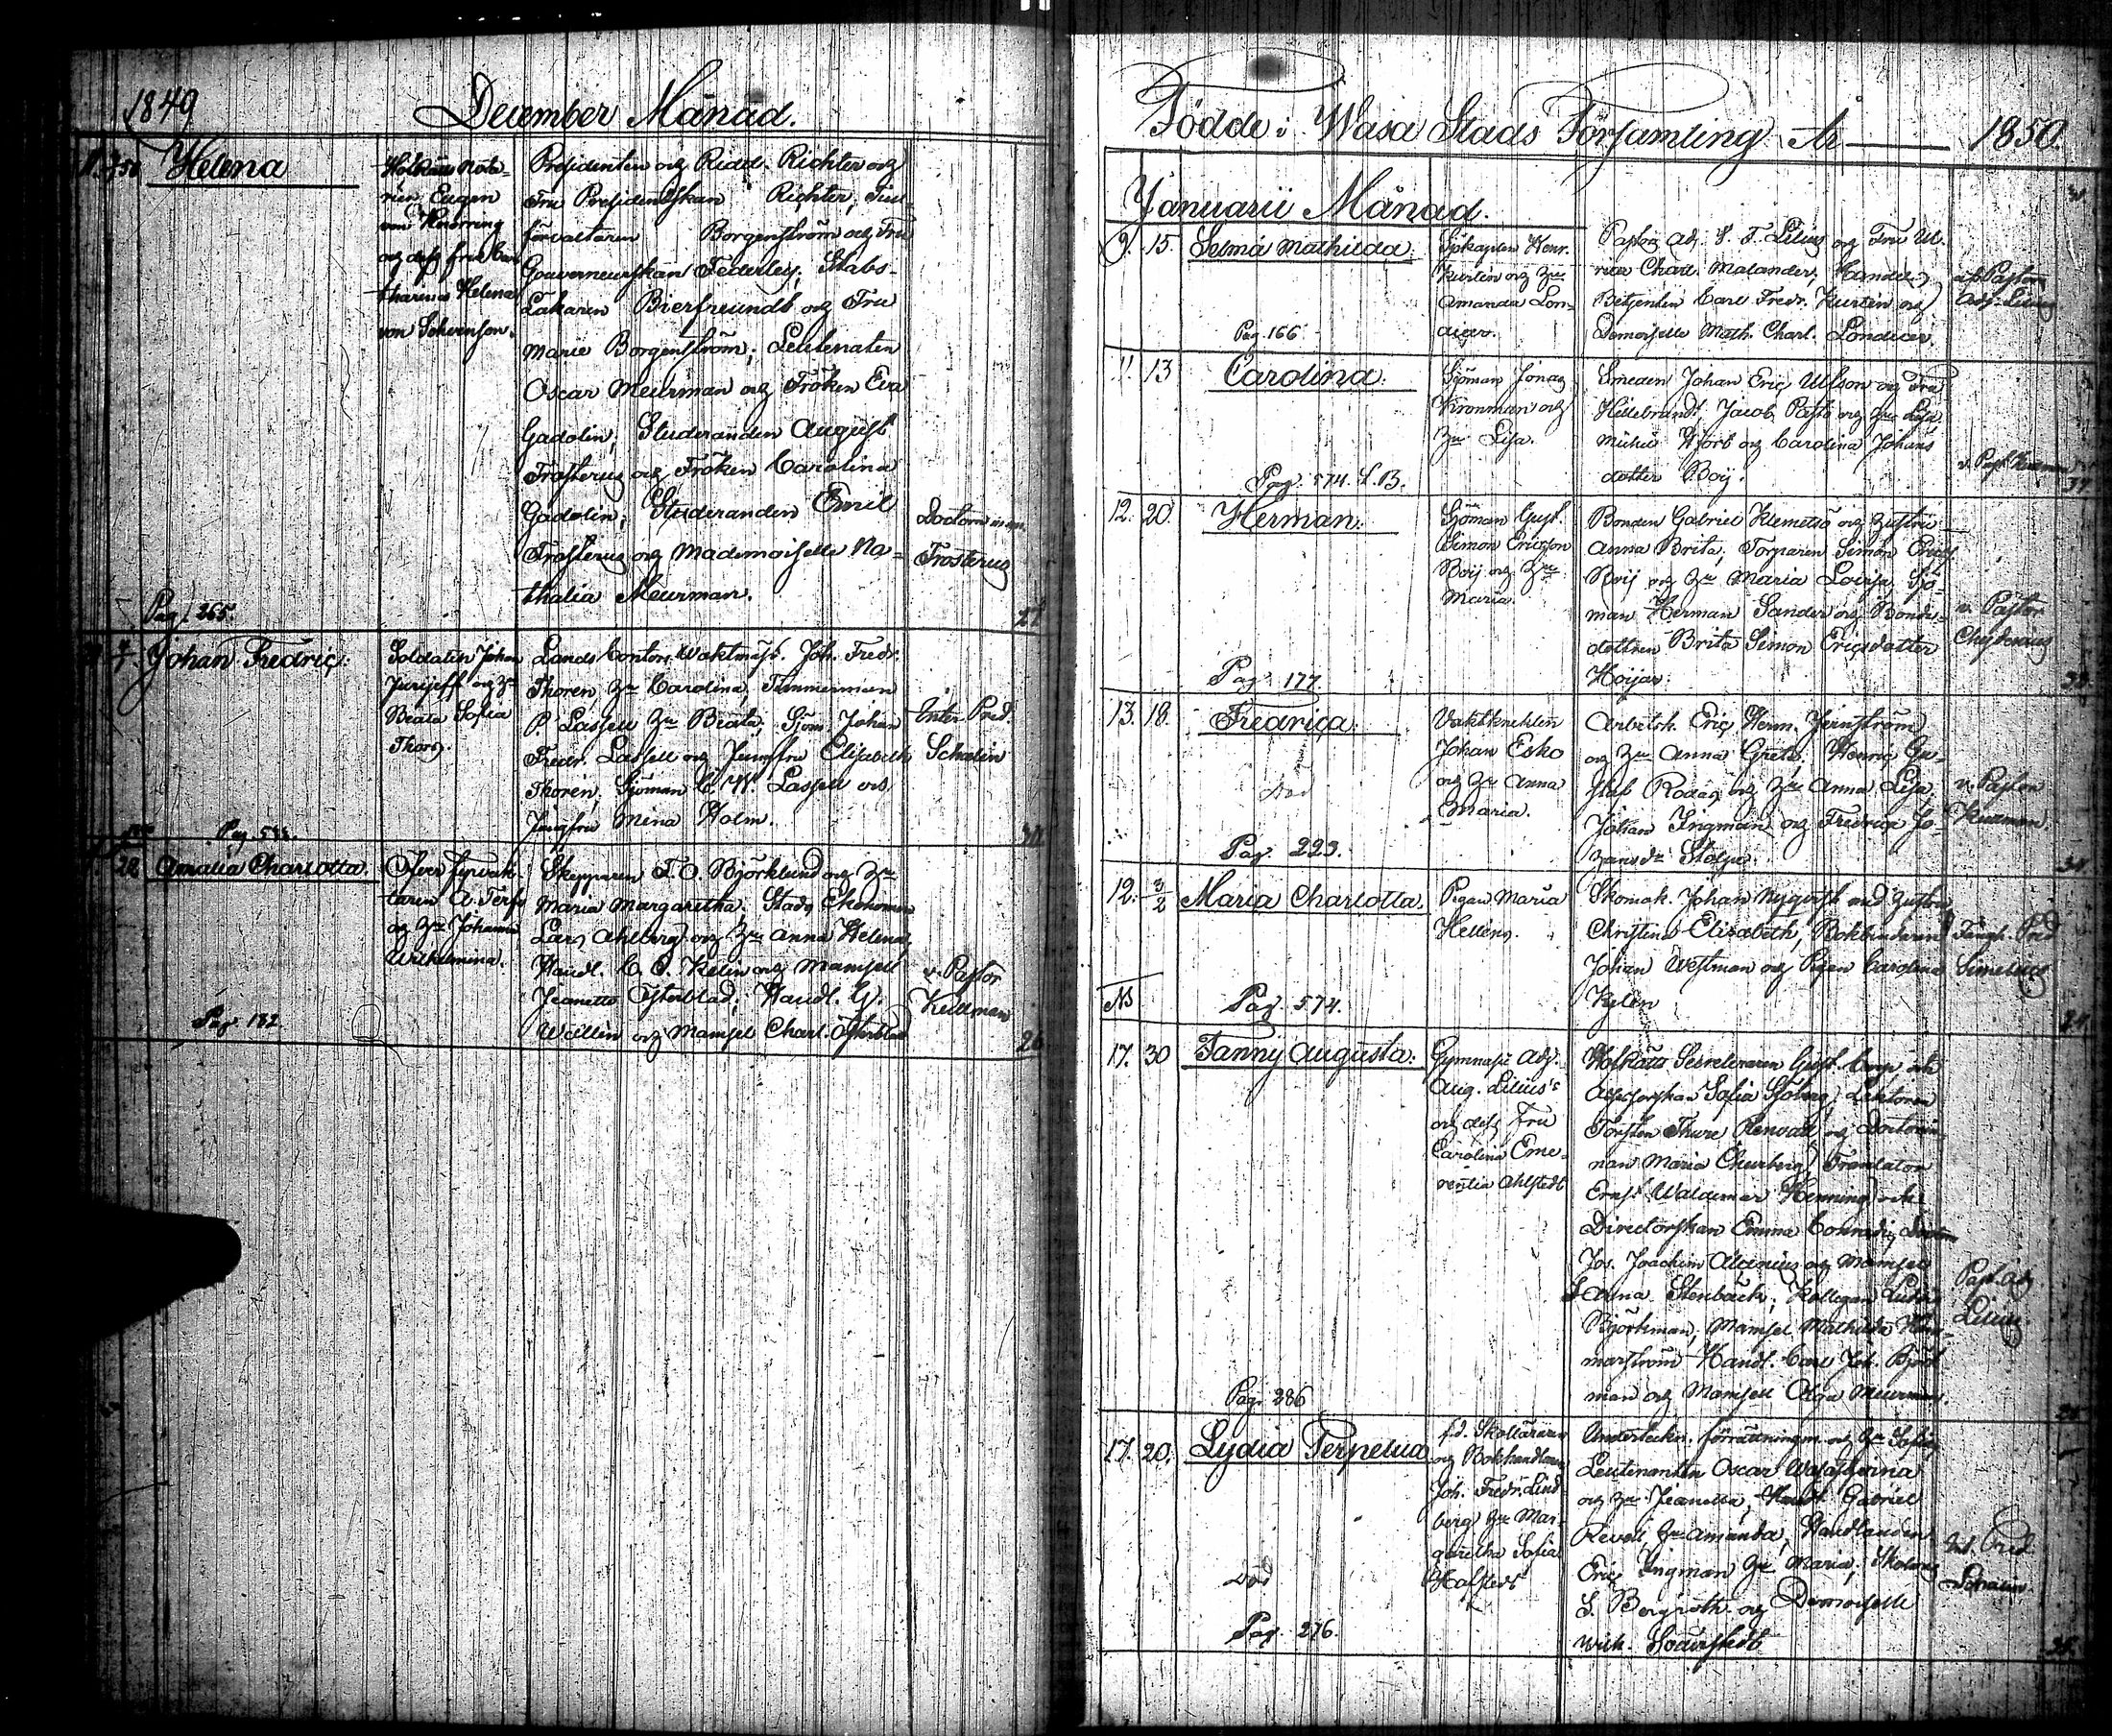 1849
December Månad.
Helena
Hofrätts Nota-
rien Eugen
von Knorring
och dess fru Ca-
tharina Helena
von Schvenson.
Presidenten och Ridd. Richter och
Fru Presidentskan Richter, Tull-
förvaltaren Borgenström och Fru
Gouverneurskan Federley; Stabs-
Läkaren Bierfreundt och Fru
Marie Borgenström; Leutenaten
Oscar Meurman och Fröken Eva
Gadolin; Studeranden August
Frosterus och Fröken Carolina
Gadolin; Studeranden Emil
Frosterus och Mademoiselle Na-
thalia Meurman.
Doctorn
Frosterus
Pag. 265.
27
Johan Fredric:
Soldaten Johan
Jurijeff och Hu
Beata Sofia
Thors.
Lands Contors Waktmäst. Joh. Fredr.
Thoren, Hu Carolina, Timmerman
P. Lassell Hu Beata; Sjöm Johan
Fredr. Lassell och Jungfru Elisabeth
Thorén, Sjöman C. W. Lassell och
Jungfru Mina Holm.
Inter. Pred.
Schalin
Pag. 533.
22 Amalia Charlotta.
Öfver fyrvak-
taren A. Terfs
och Hu Johanna
Wilhelmina.
Skepparen F. O. Björklund och Hu
Maria Margaretha. Stads Ekonomen
Lars Ahlberg och Hu Anna Helena,
Handl. C. O. Kelin och Mamsell
Jeanette Österblad; Handl. G.
Wallin och Mamsel Charl. Österblad
v. Pastor
Kellman
Pag. 182.
26
Födde i Wasa Stads Församling År 1850.
Januarii Månad.
9. 15. Selma Mathilda.
Sjökapten Henr.
Kurtén och Hu
Amanda Lon-
dicer.
Pastors Adj. L. F. Lilius och Fru Ul-
rica Charl. Malander, Handels
Betjenten Carl Fredr. Kurtén och
Demoiselle Math. Charl. Londicer.
af Pastors
Adj. Lilius
Pag. 166
11. 13 Carolina.
Sjöman Jonas
Kronman och
Hu Lisa.
Smeden Johan Eric Ulson och Fru
Hillebrandt, Jacob Pasto och Hu Lisa,
Michel Hjort och Carolina Johans
dotter Boij.
Pag. 574. L. B.
12. 20. Herman:
Sjöman Gust.
Simon Ericsson
Boij och Hu
Maria.
Bonden Gabriel Klemetsö och hustru
Anna Brita, Torparen Simon Erics
Boij och Hu Maria Lovisa, Sjö-
man Herman Sander och Bonde-
dottren Brita Simon Ericsdotter
Höijar.
v. Pastor
Chydenius
Pag. 177.
13. 18. Fredrica.
Vaktknekten
Johan Esko
och Hu Anna
Maria.
Död
Arbetsk. Eric Herm. Jernström
och Hu Anna Greta, Henric Gu-
staf Rodas och Hu Anna Lisa,
Johan Ingman och Fredrica Jo-
hansdr Stolpe.
v. Pastor
Kellman
Pag. 223.
12. 3/2 Maria Charlotta.
Pigan Maria
Hellens.
Skomak. Johan Nyqvist med hustru
Christina Elisabeth, Bokbindaren
Johan Westman och Pigan Carolina
Kylén
Fängh. Pred
Simelius
Ns
Pag. 574.
17. 30 Fanny Augusta:
Gymnasii Adj.
Aug. Lilius's
och dess Fru
Carolina Eme-
rentia Ahlstedt
Hofrätts Secreteraren Gust. Camp och
Assessorskan Sofia Sjöberg; Lektoren
Torsten Thure Renvall och Doctorin-
nan Maria Churberg; Translator
Ernst Waldemar Henning och
Directorskan Emma Conradi; Doctorn
Jos. Joachim Alcenius och Mamsell
Anna Stenbäck; Kollegan Ludv.
Björkman, Mamsel Mathilda Ham-
marström Handl. Carl Joh. Björk
man och Mamsell Olga Meurman.
Past. Adj
Lilius
Pag. 286
17. 20. Lydia Perpetua
f.d. Skolläraren
och Bokhandlaren
Joh. Fredr. Lind-
berg Hu Mar-
garetha Sofia
Hofstedt
Underteckn. förrättningsm. och Hu Sofia,
Leutenanten Oscar Wasastjerna
och Hu Jeanetta, Handl. Gabriel
Revell, Hu Amanda, Handlanden
Eric Ingman Hu Maria;
L. Bergroth och Demoiselle
Wilh. Söderstedt
Int. Pred
Schalin.
Död
Pag. 276.